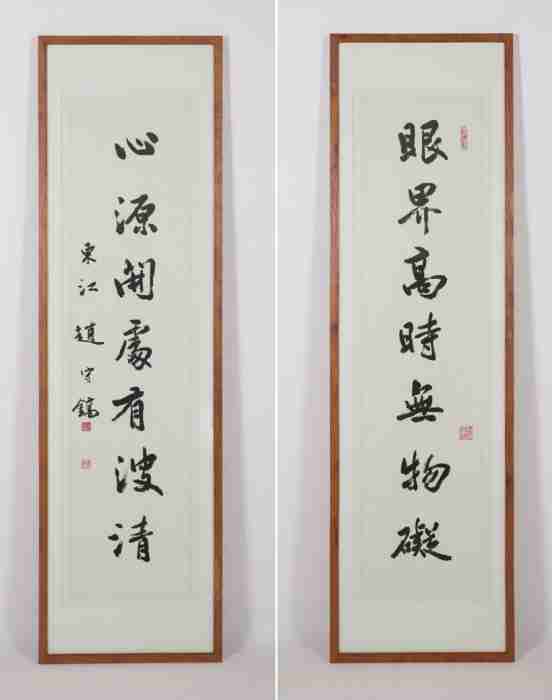 眼界高時無物礙
心源開處有波清
東江 趙守鎬